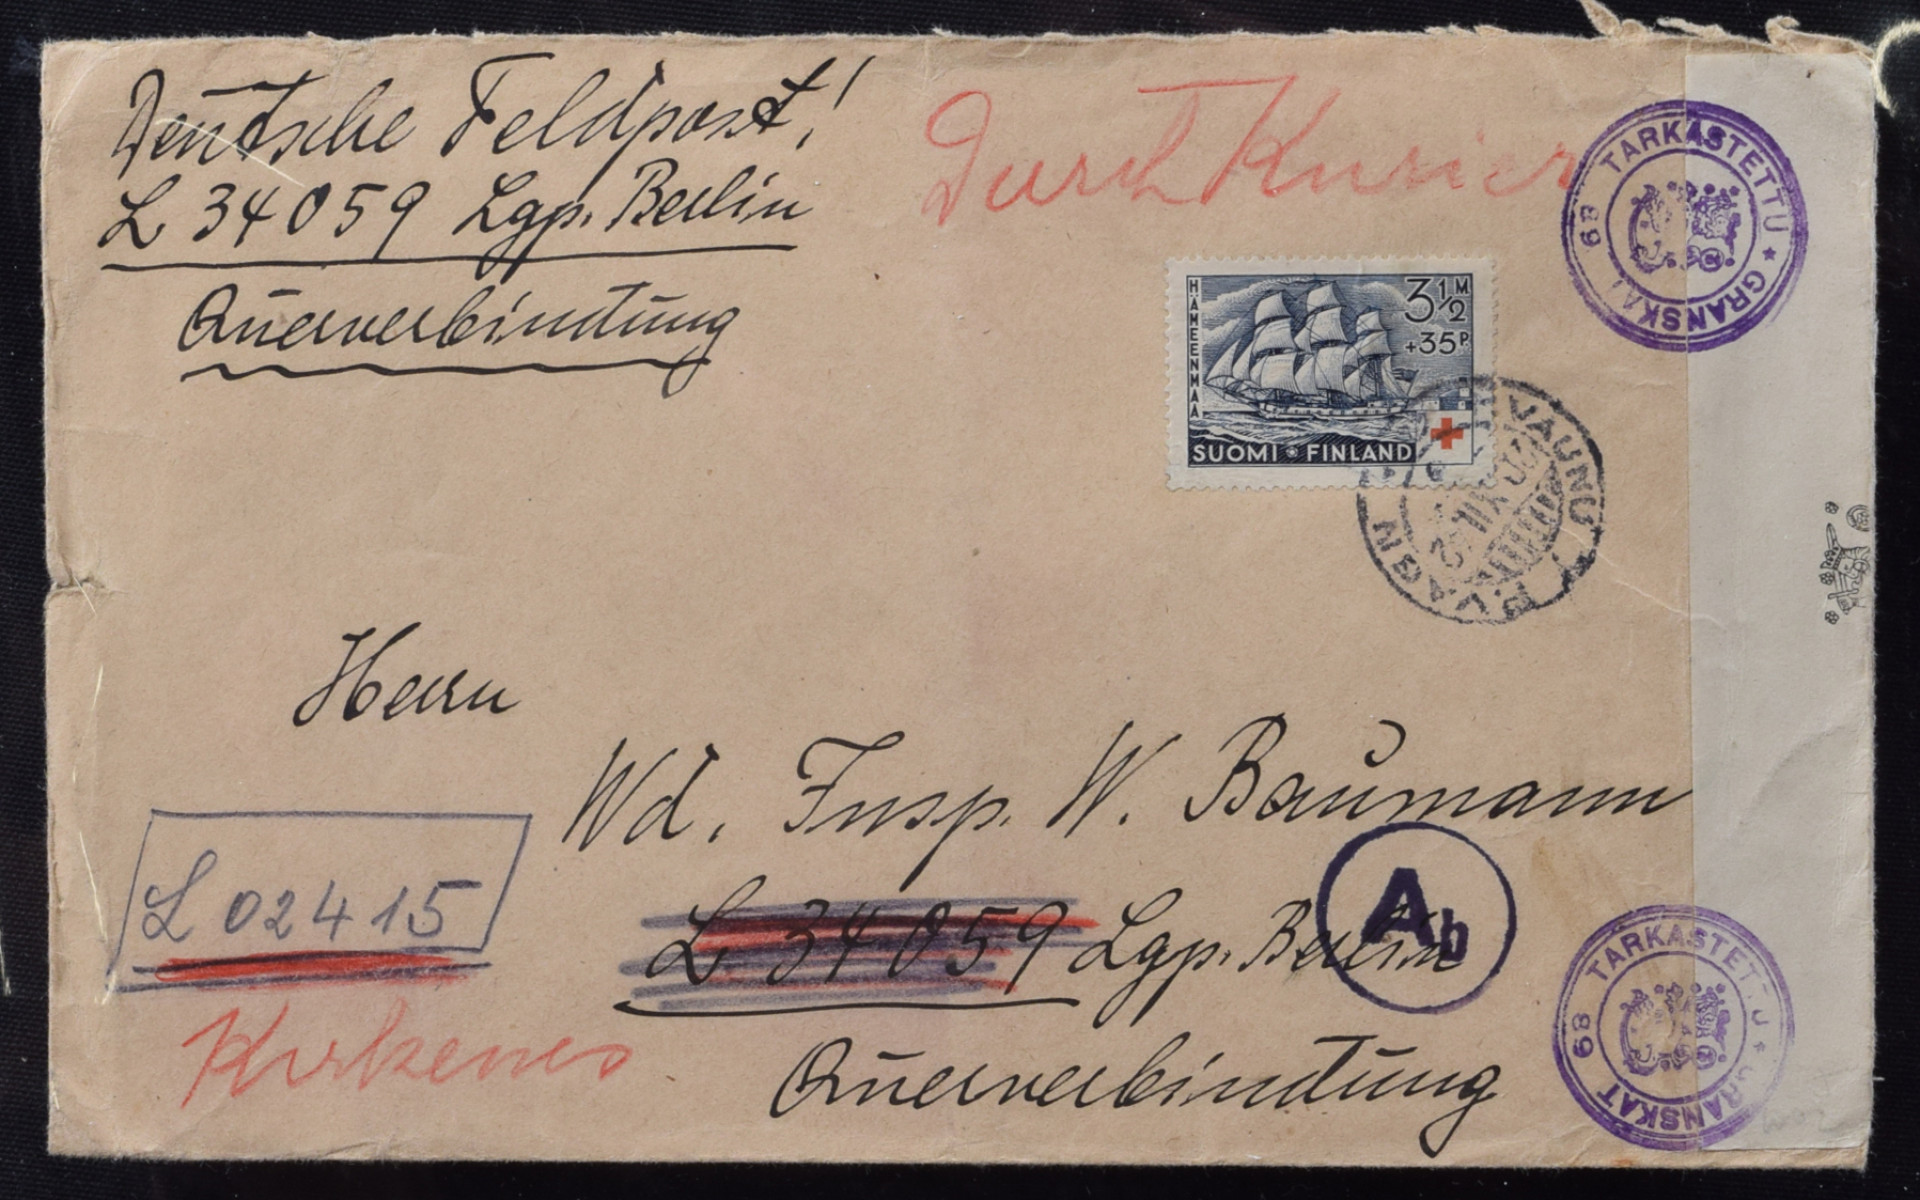 Deutsche Feldpost!
L 34059 Lgp. Berlin
Querverbindung
Durch Kurier
TARKASTETTU * GRANSKAT 68
HÄMEENMAA
3½ M
+35 P
SUOMI FINLAND
P.VAUNU P.VAGN
XII
Herrn
Wd. Insp. W. Baumann
L 34059 Lgp. Berlin
Querverbindung
Ab
L 02415
Kirkenes
TARKASTETTU * GRANSKAT 68